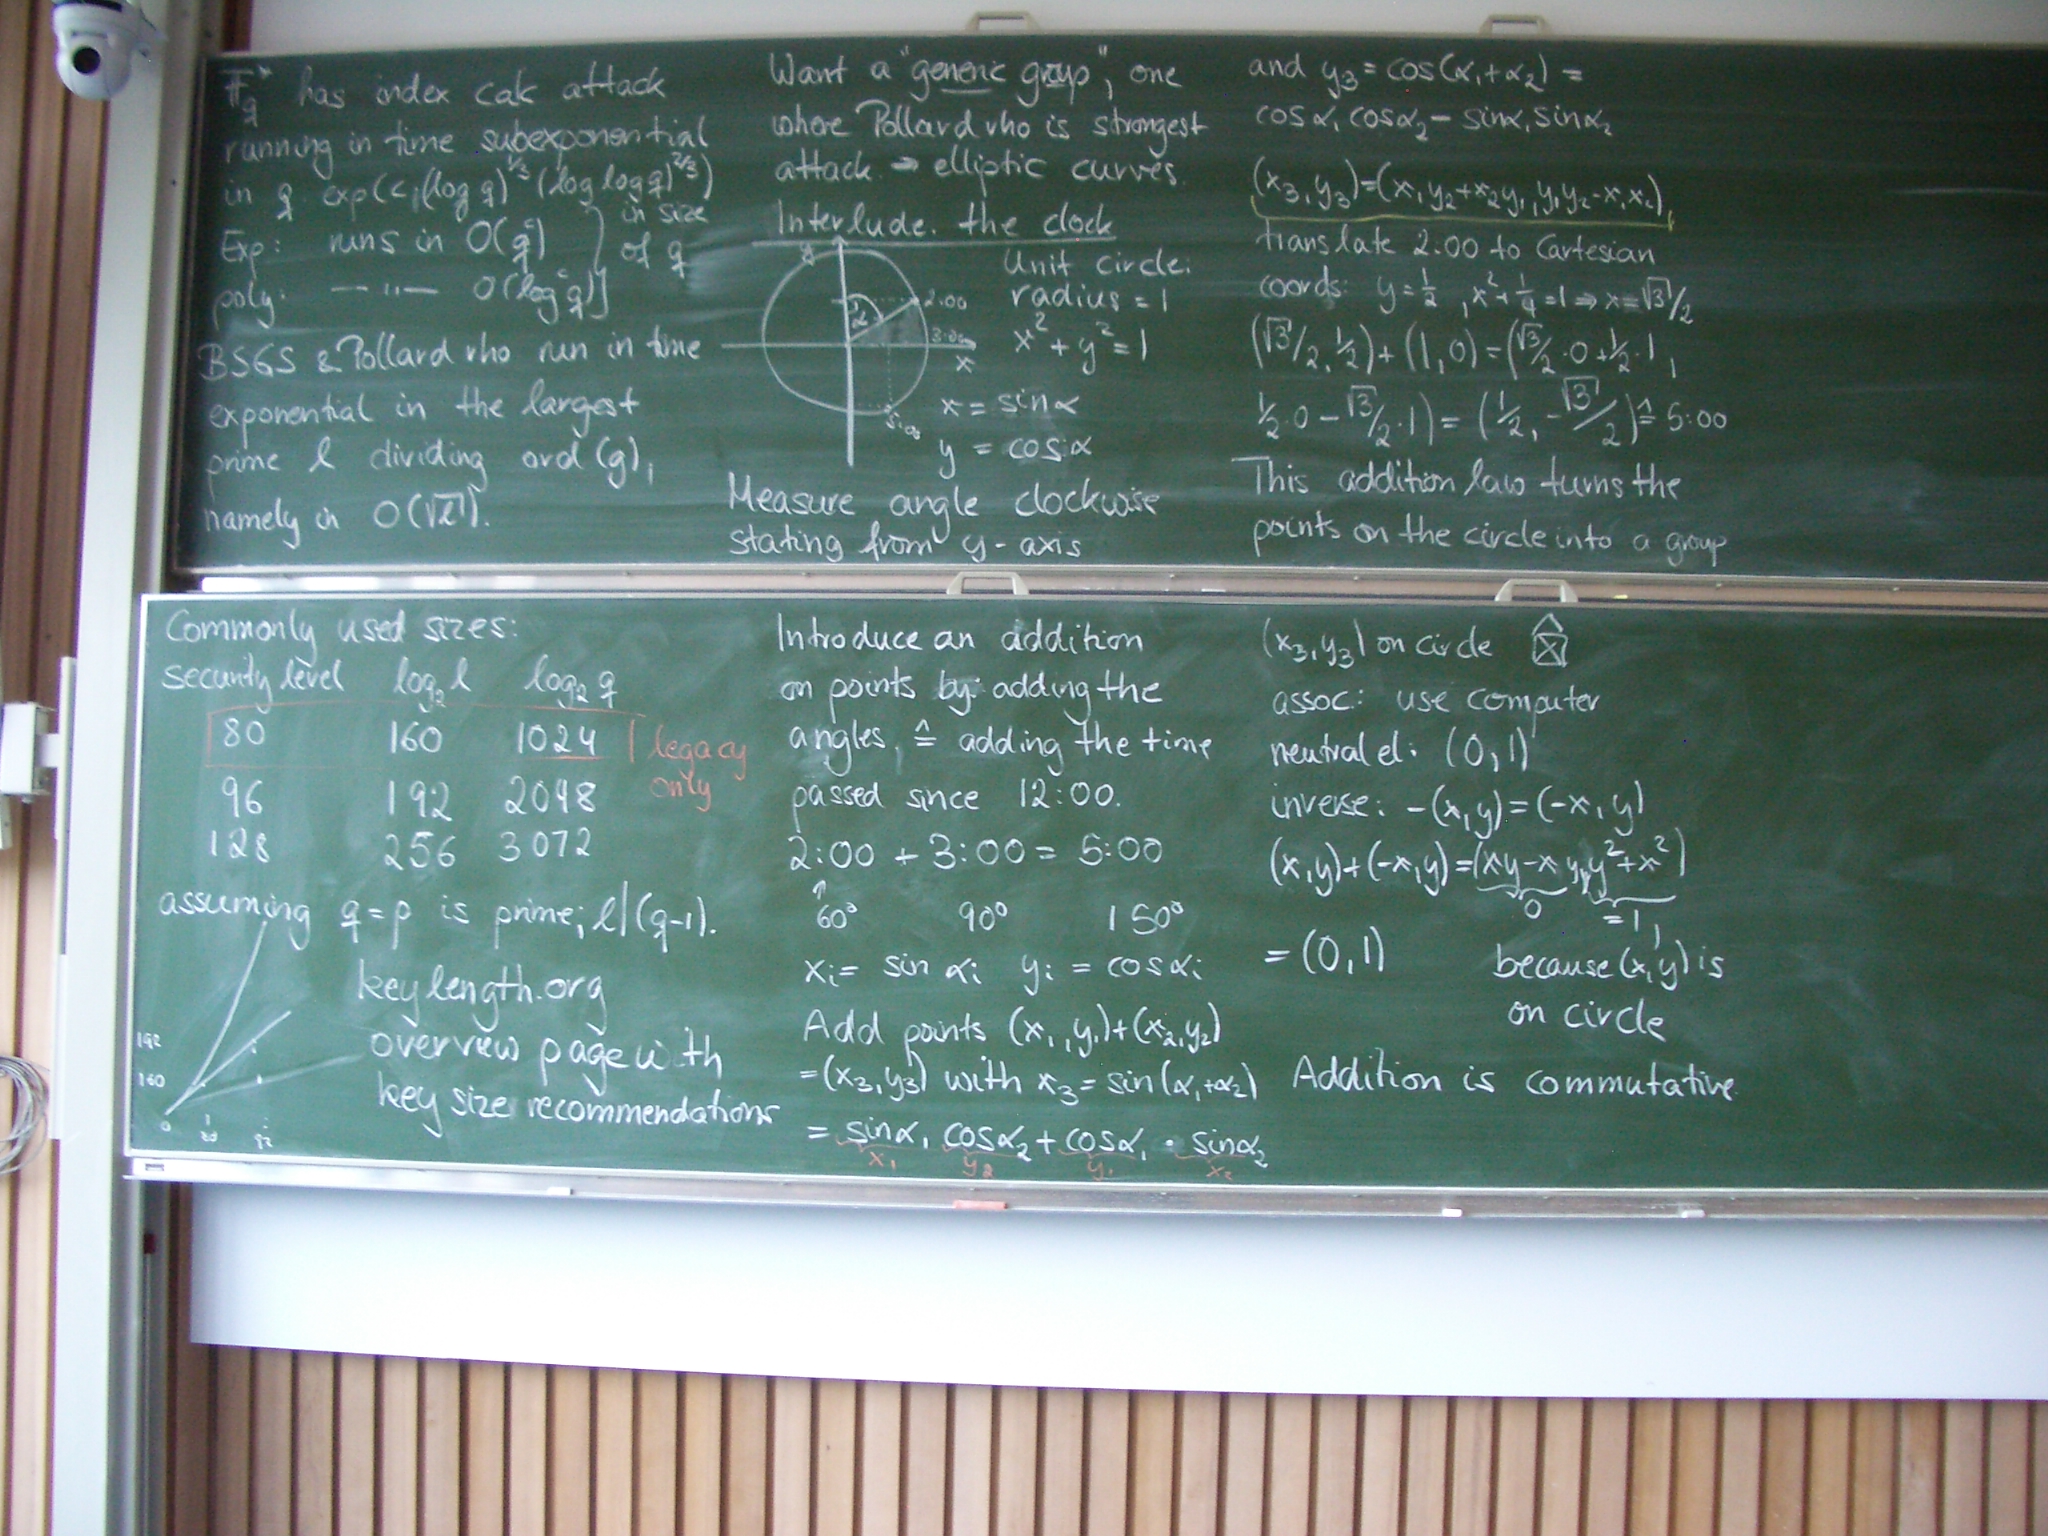 F_q^* has index calc attack
running in time subexponential
in q exp(c(log q)^{1/3}(log log q)^{2/3})
Exp: runs in O(q^c) } in size
poly: —〃— O(log^c q)] of q
BSGS & Pollard rho run in time
exponential in the largest
prime l dividing ord(g),
namely in O(√l).
Want a "generic group", one
where Pollard rho is strongest
attack → elliptic curves.
Interlude. the clock
y
α
2:00
3:00
x
5:00
Unit circle:
radius = 1
x² + y² = 1
x = sin α
y = cos α
Measure angle clockwise
stating from y-axis
and y₃ = cos(α₁+α₂) =
cos α₁ cos α₂ - sin α₁ sin α₂
(x₃, y₃) = (x₁y₂+x₂y₁, y₁y₂-x₁x₂)
translate 2:00 to Cartesian
coords: y = 1/2, x² + 1/4 = 1 ⇒ x = √3/2
(√3/2, 1/2) + (1, 0) = (√3/2 · 0 + 1/2 · 1,
1/2 · 0 - √3/2 · 1) = (1/2, -√3/2) ≙ 5:00
This addition law turns the
points on the circle into a group
Commonly used sizes:
security level log₂ l log₂ q
80 160 1024 legacy
only
96 192 2048
128 256 3072
assuming q = p is prime; l | (q-1).
keylength.org
overview page with
key size recommendations
192
160
0
80
Introduce an addition
on points by: adding the
angles, ≙ adding the time
passed since 12:00.
2:00 + 3:00 = 5:00
↑
60° 90° 150°
x_i = sin α_i y_i = cos α_i
Add points (x₁, y₁)+(x₂, y₂)
= (x₃, y₃) with x₃ = sin(α₁+α₂)
= sin α₁ cos α₂ + cos α₁ · sin α₂
x₁ y₂ y₁ x₂
(x₃, y₃) on circle
assoc: use computer
neutral el: (0, 1)
inverse: -(x, y) = (-x, y)
(x, y)+(-x, y) = (xy-xy, y²+x²)
0 = 1,
= (0, 1) because (x, y) is
on circle
Addition is commutative